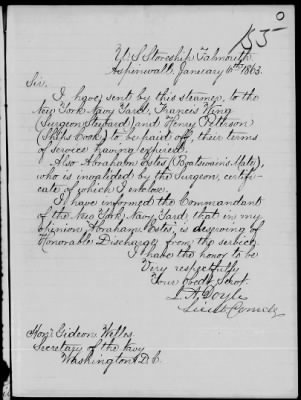 0
155
U.S. Storeship Falmouth
Aspinwall, January 6th 1863.
Sir.
I have, sent by this steamer, to the
New York Navy Yard, Francis King
(Surgeon Steward) and Henry Peterson
(Ships Cook) to be paid off, their terms
of service having expired.
Also Abraham Estes (Boatswain's Mate),
who is invalided by the Surgeon, certifi-
cate of which I enclose.
I have informed the Commandant
of the New York Navy Yard, that in my
opinion "Abraham Estes", is deserving of
Honorable Discharge from the service.
I have the honor to be
Very respectfully
Your Obedt. Servt.
Doyle
Lieut. Comdg
Honl Gideon Welles
Secretary of the Navy
Washington D.C.